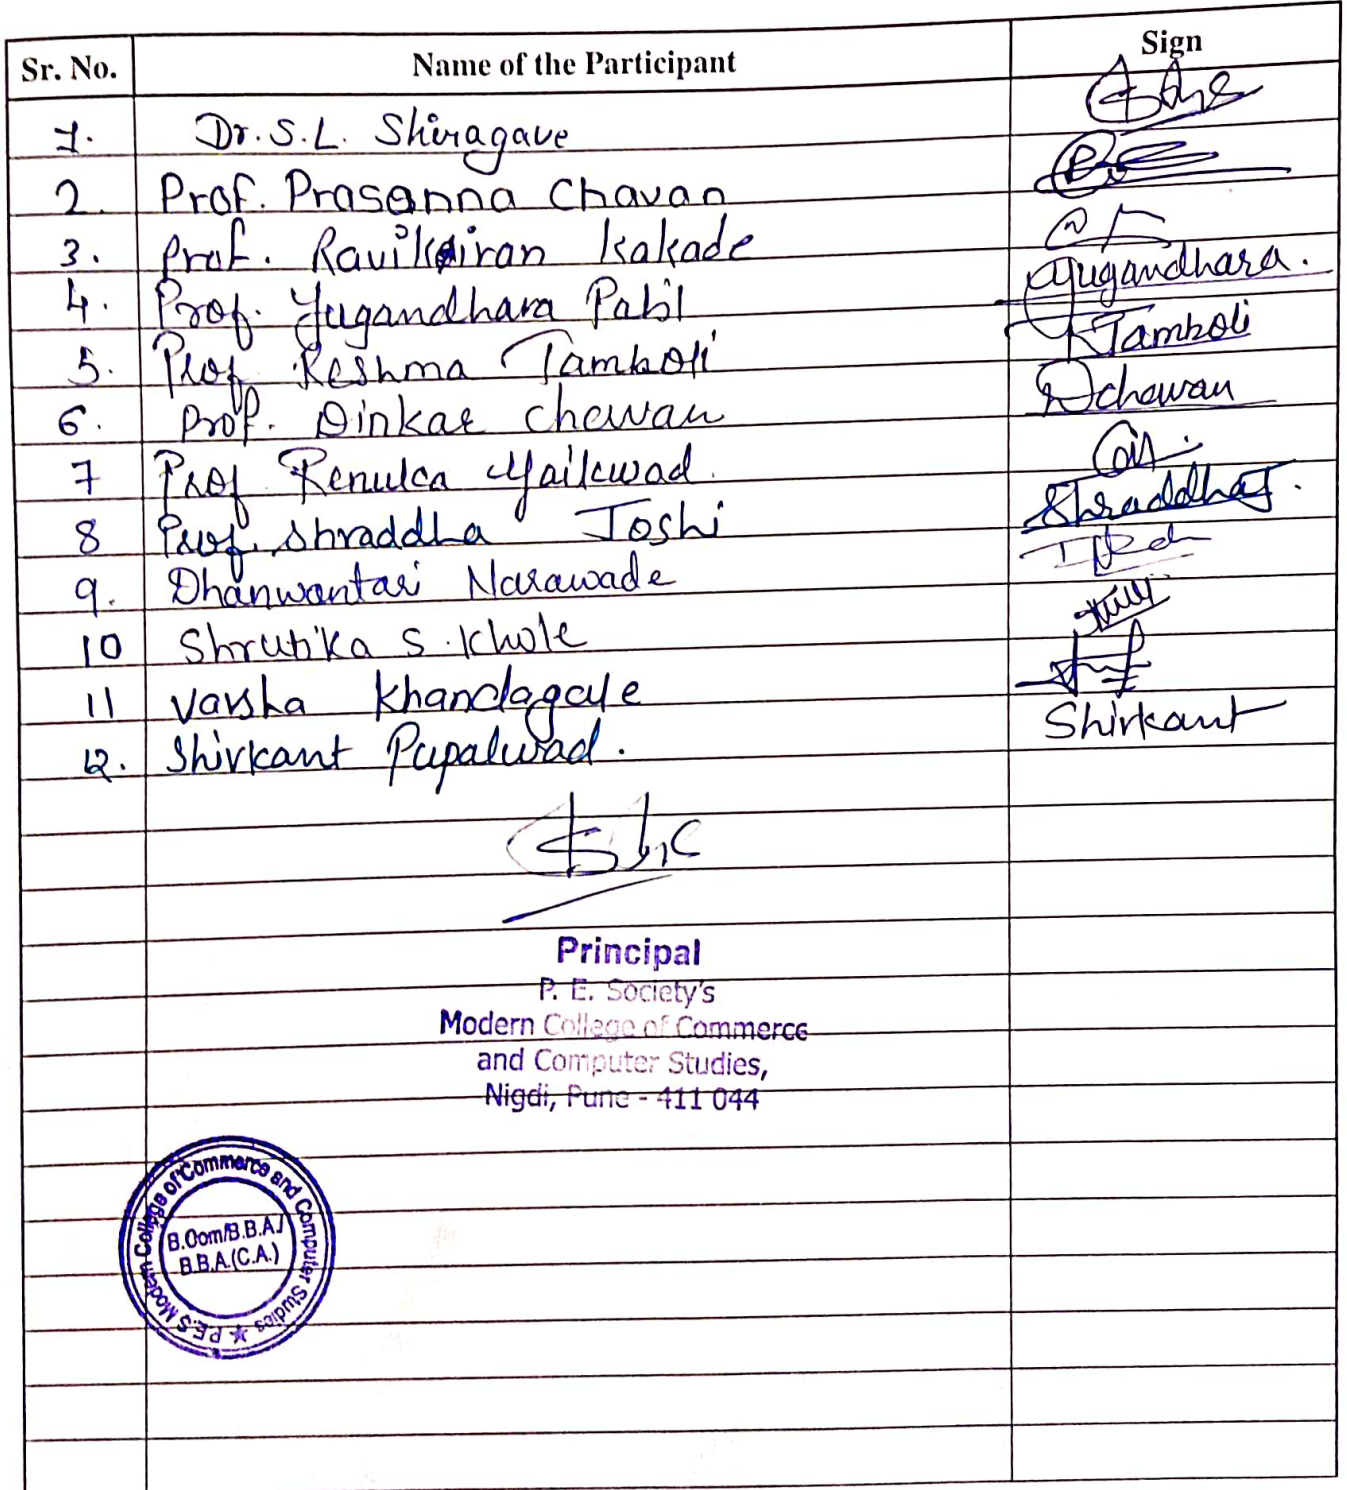 Sr. No. Name of the Participant Sign
1. Dr. S.L. Shiragave
2. Prof. Prasanna Chavan
3. Prof. Ravikiran Kakade
4. Prof. Yugandhara Patil Yugandhara.
5. Prof. Reshma Tamboli RTamboli
6. Prof. Dinkar Chavan Dchavan
7 Prof Renuka Gaikwad.
8 Prof. Shraddha Joshi ShraddhaJ.
9. Dhanwantari Narawade
10 Shrutika S. Khole
11 Varsha Khandagale
12. Shirkant Papalwad. Shirkant
Principal
P. E. Society's
Modern College of Commerce
and Computer Studies,
Nigdi, Pune - 411 044
P.E.S Modern College of Commerce and Computer Studies ★
B.Com/B.B.A./
B.B.A.(C.A.)